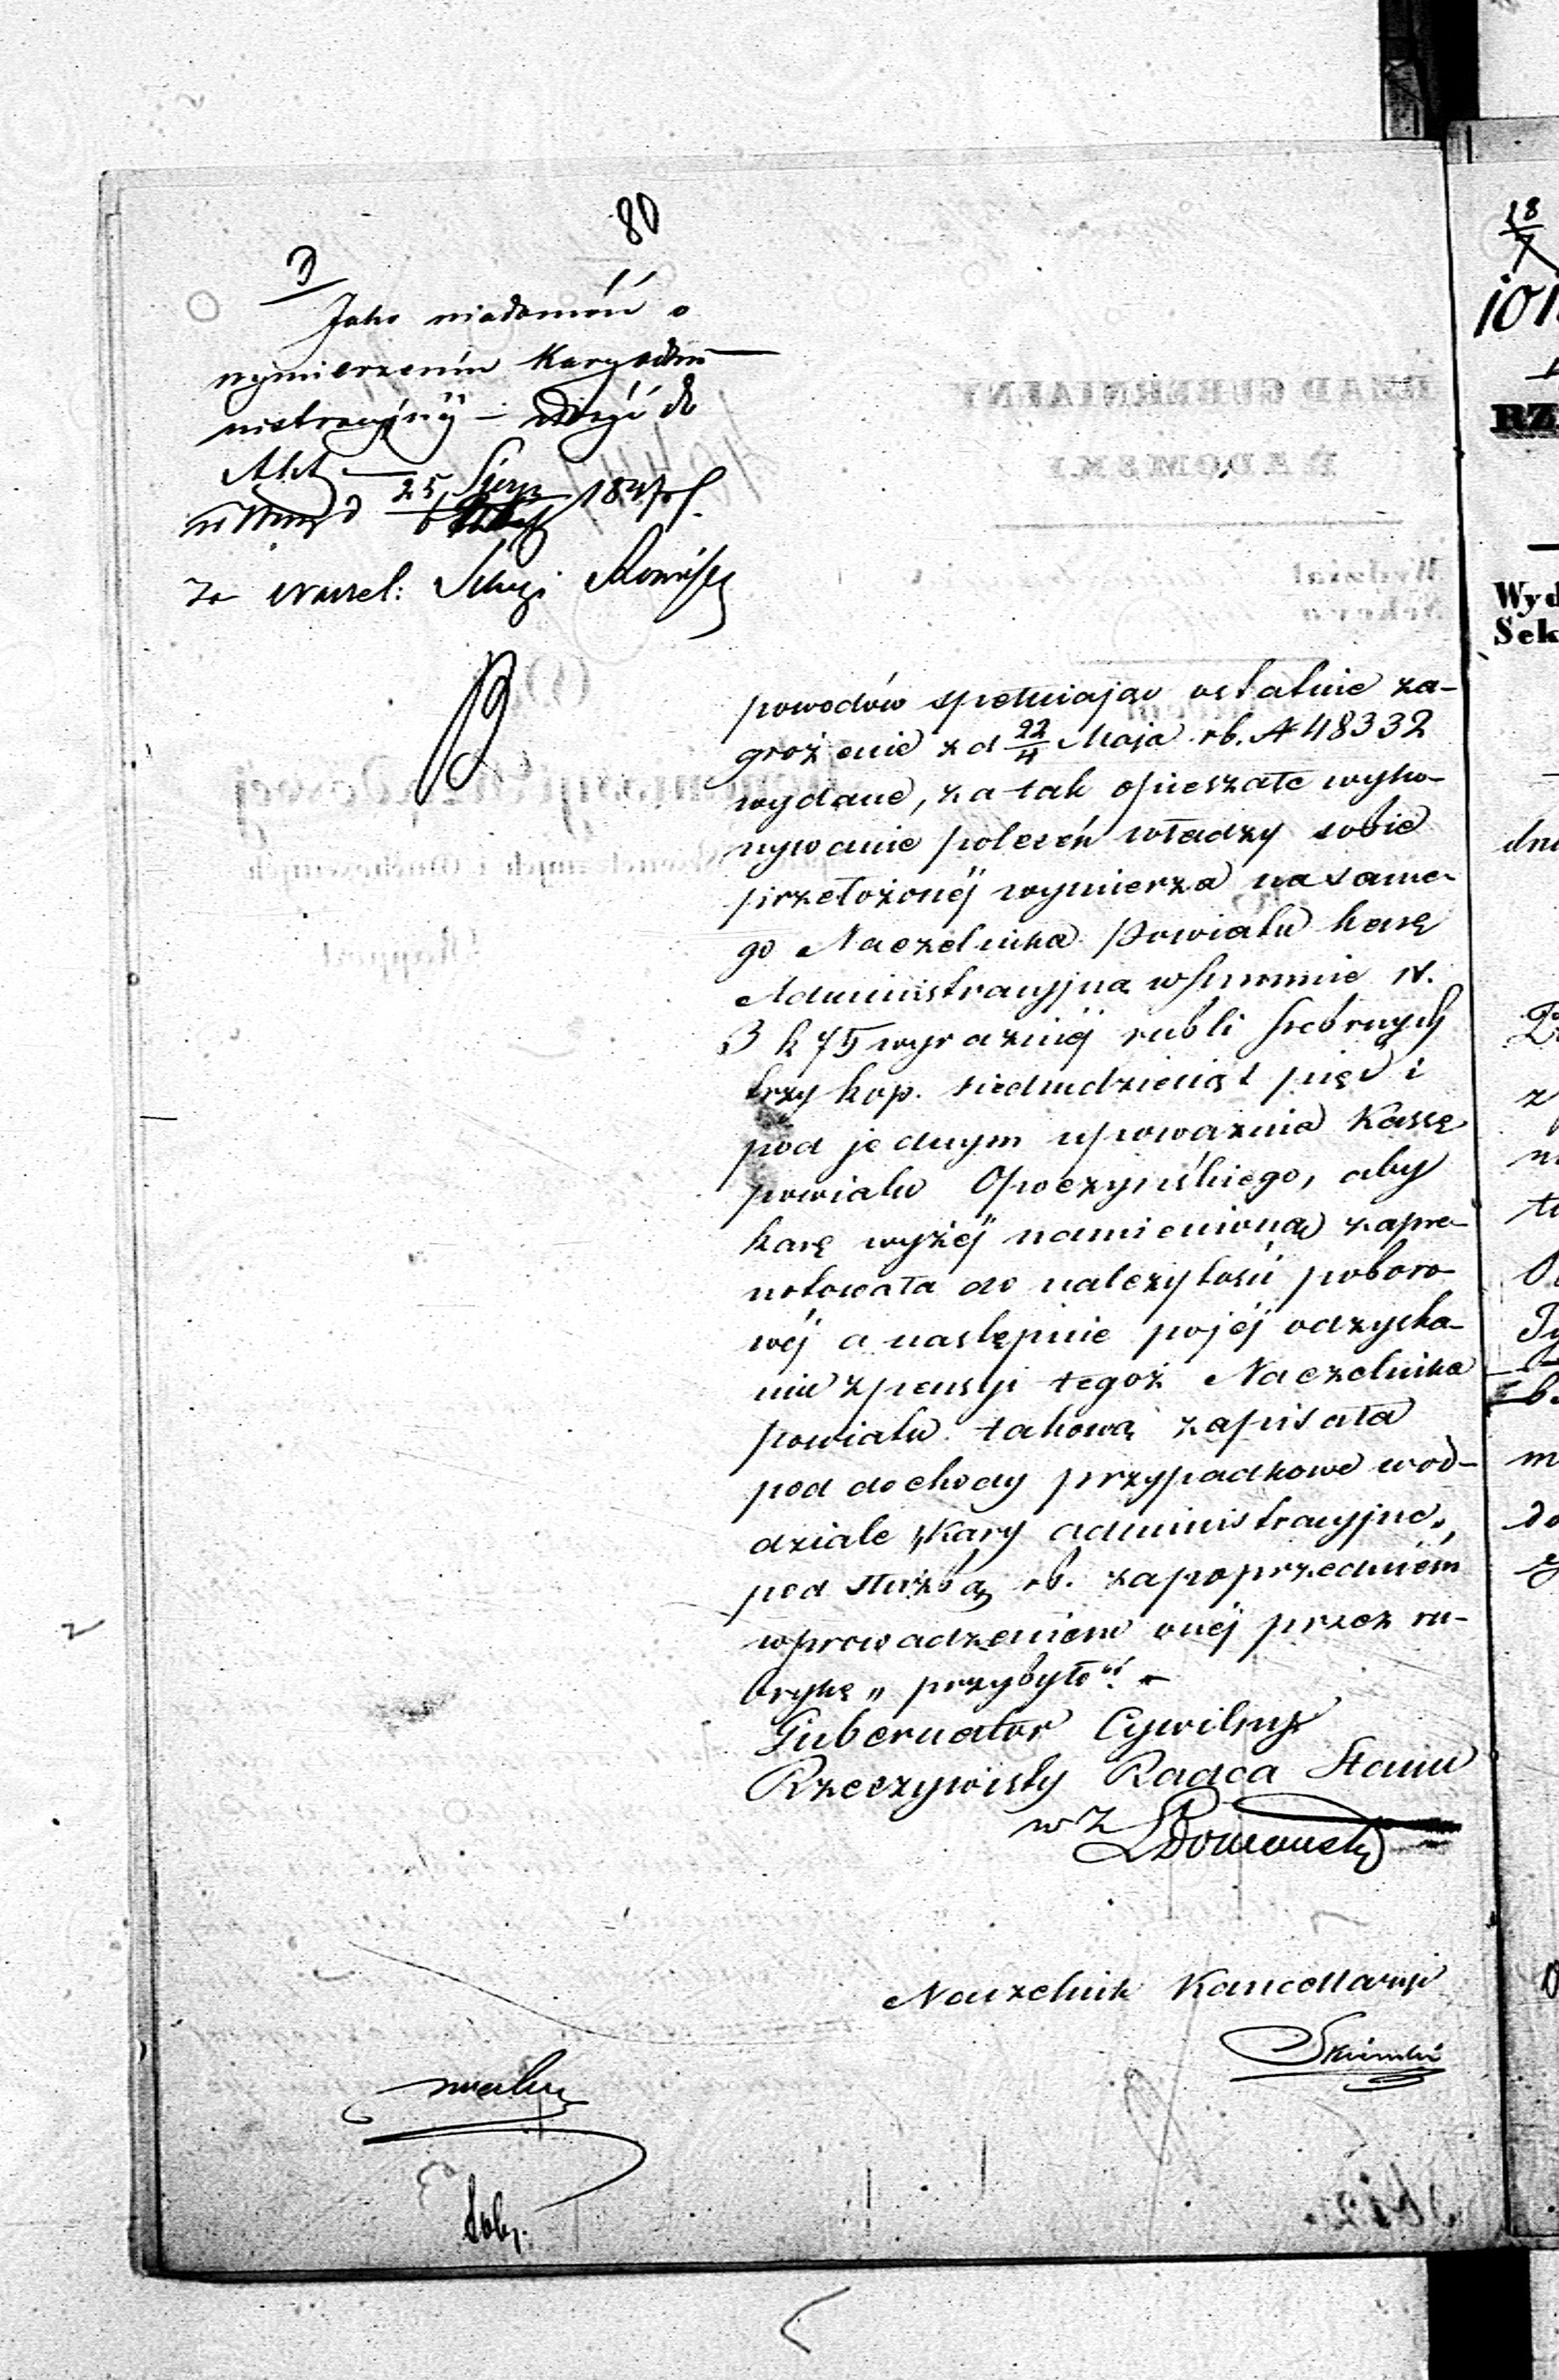 80
Jako wiadomość o
wymierzeniu Kary admi-
nistracyjnéj — złożyć do
Akt
25 Sierp 1847 r.
Za Naczel: Służyi
powodów spełniając ostatnie za-
grożenie z d 22/4 Maja rb. N 48332
wydane, za tak opieszałe wyko-
nywanie poleceń władzy sobie
przełożonéj wymierza na same-
go Naczelnika Powiatu karę
Administracyjną w summie rs.
3 k 75 wyraźniéj rubli srebrnych
trzy kop. siedmdziesiąt pięć i
pod jednym upoważnia Kassę
powiatu Opoczyńskiego, aby
karę wyżéj namienioną zapre-
notowała do należytości poboro-
wéj a następnie pojéj odzyska-
niu z pensyi tegoż Naczelnika
powiatu takową zapisała
pod dochody przypadkowe w od-
dziale „Kary administracyjne„
pod służbą rb. za poprzedniém
wprowadzeniem onéj przez ru-
brykę „ przybyło". –
Gubernator Cywilny
Rzeczywisty Radca Stanu
w Z
Naczelnik Kancellaryi